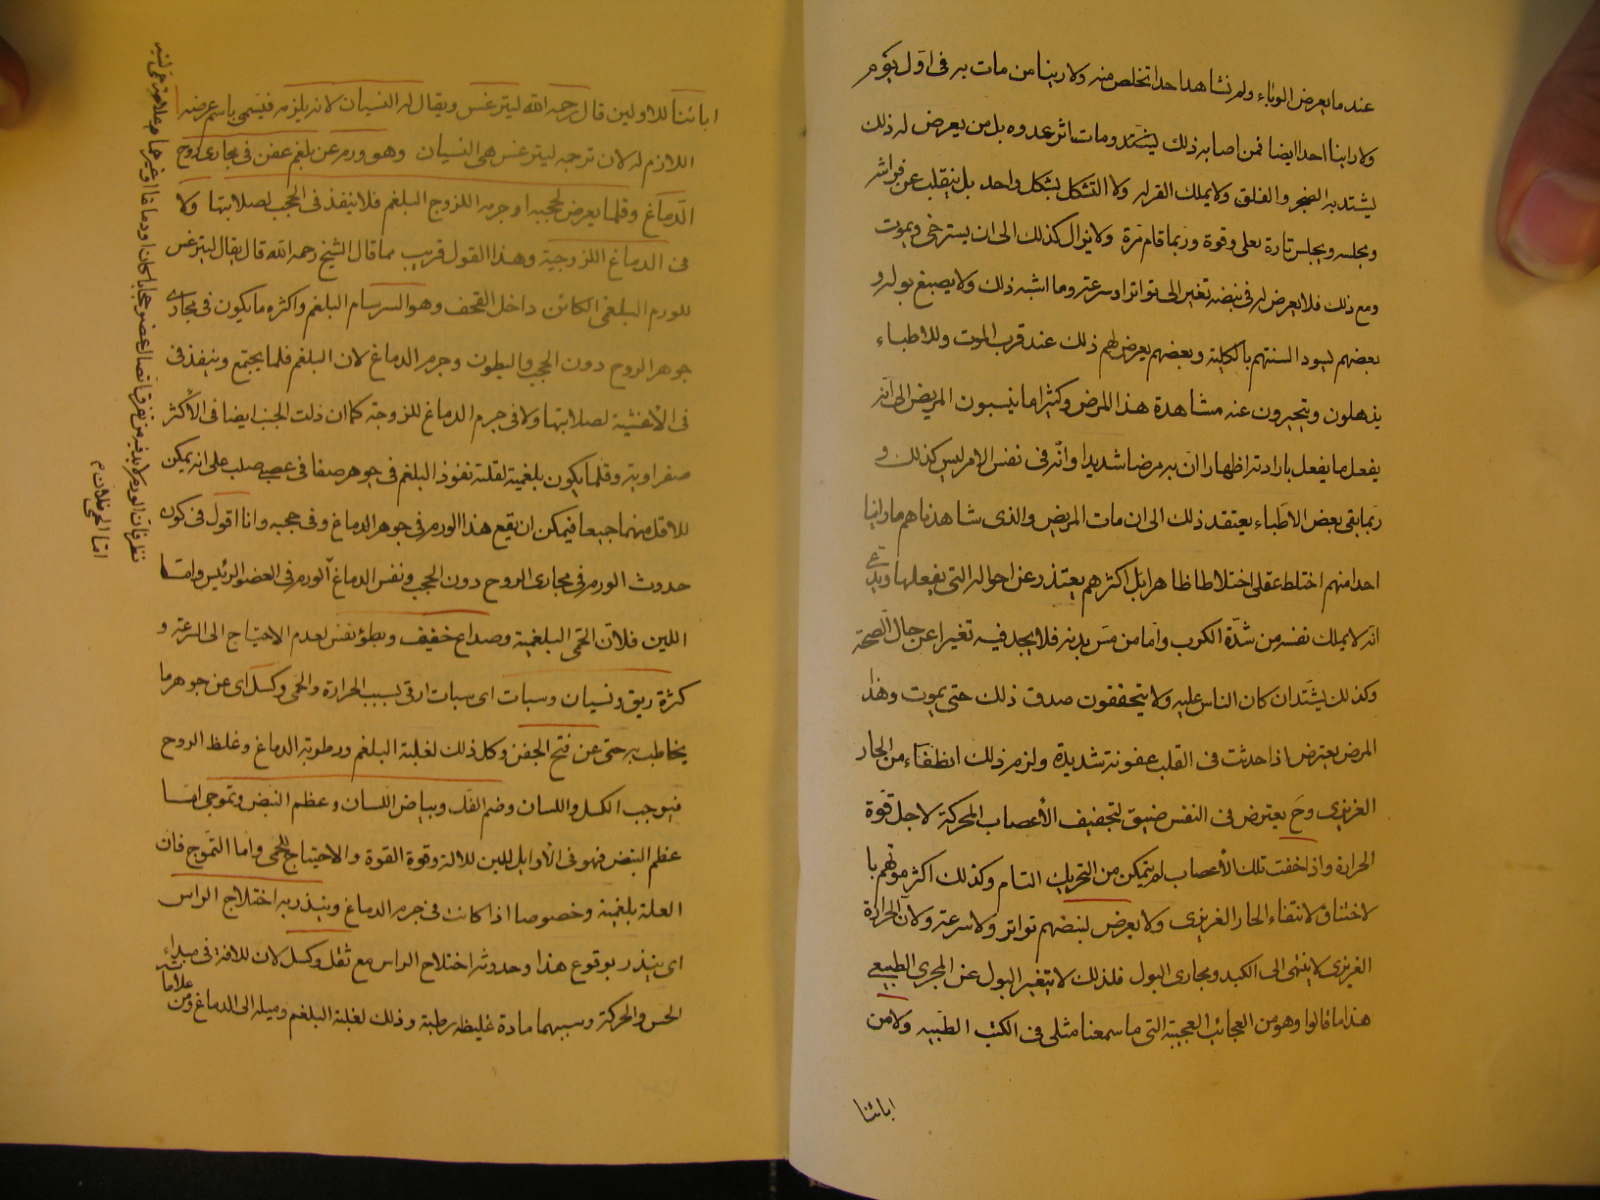 عند ما يعرض الوباء ولم نشاهد احدا تخلص منه ولا رينا من مات به فى اول يوم
ولا راينا احدا ايضا فمن اصابه ذلك ومات اثر عدوه بل من يعرض له ذلك
يشتد به الضجر والقلق ولا يملك القرار ولا التشكل بشكل واحد بل ينقلب عن فراش
ومجلسه ويجلس تارة بعلى وقوة وربما قام مرة ولا يزال كذلك الى ان يسترخى ويموت
ومع ذلك فلا يعرض له فى نبضه تغير الى تواتر او سرعة وما اشبه ذلك ولا يصبغ بوله و
بعضهم يسود السنتهم بالكلية وبعضهم يعرض لهم ذلك عند قرب الموت وللاطباء
يذهلون ويتحيرون عنه مشاهدة هذا المرض وكثيرا ما ينسبون المريض الى انه
يفعل ما يفعل بارادته اظهارا ان به مرضا شديدا وانه فى نفس الامر ليس كذلك و
ربما بقى بعض الاطباء يعتقد ذلك الى ان مات المريض والذى شاهدناهم ما راينا
احدا منهم اختلط عقله اختلاطا ظاهرا بل اكثرهم يعتذر عن احواله التى يفعلها ويدعى
انه لا يملك نفسه من شدة الكرب واما من مس بدنه فلا يجد فيه تغيرا عن حال الصحة
وكذلك يشتد ان كان الناس عليه ولا يتحققون صدق ذلك حتى يموت وهذا
المرض يعترض اذا حدثت فى القلب عفونة شديدة ولزم ذلك انطفاء من الحار
الغريزى وح يعترض فى النفس ضيق لتجفيف الأعصاب المحركة لاجل قوة
الحرارة واذا خفت تلك الأعصاب لم يتمكن من التحريك التام وكذلك اكثر موتهم با
لاختناق لانتفاء الحار الغريزى ولا يعرض لنبضهم تواتر ولا سرعة ولان الحرارة
الغريزى لا ينتهى الى الكبد ومجارى البول فلذلك لا يتغير البول عن المجرى الطبيعى
هذا ما قالوا وهو من العجائب العجيبة التى ما سمعنا مثلى فى الكتب الطبيه ولا من
ابائنا
ابائنا للاولين قال رحمه الله ليترغس ويقال له النسيان لانه يلزمه فيسمى باسم عرضه
اللازم له لان ترجمه ليترغس هى النسيان وهو ورم عن بلغم عفن فى مجارى روح
الدماغ وقلما يعرض لحجبه او جرمه اللزوج البلغم فلا ينفذ فى الحجب لصلابتها ولا
فى الدماغ اللزوجية وهذا القول قريب مما قال الشيخ رحمه الله قال يقال ليترغس
للورم البلغمى الكائن داخل القحف وهو السرسام البلغم واكثره ما يكون فى مجارى
جوهر الروح دون الحجب والبطون وجرم الدماغ لان البلغم قلما يجتمع وينفذ فى
فى الأغشية لصلابتها ولا فى جرم الدماغ للزوجته كما ان ذات الجنب ايضا فى الأكثر
صفراوية وقلما يكون بلغمية لقلته نفوذ البلغم فى جوهر صفاقى عصبى صلب على انه يمكن
للاقل منهما جميعا فيمكن ان يقع هذا الورم فى جوهر الدماغ وفى حجبه وانا اقول فى كون
حدوث الورم فى مجارى الروح دون الحجب ونفس الدماغ الورم فى العضو الرئيس واما
اللين فلان الحمى البلغمية وصداع خفيف وبطؤ نفس لعدم الاحتياج الى السرعة و
كثرة ريق ونسيان وسبات اى سبات ارقى بسبب الحرارة والحمى وكسل اى عن جوهر ما
يخاطب به حتى عن فتح الجفن وكل ذلك لغلبة البلغم ورطوبة الدماغ وغلظ الروح
فيوجب الكسل واللسان وضم الفك وبياض اللسان وعظم النبض وتموجى اما
عظم النبض فهو فى الأوايل للين للالة وقوة القوة والاحتياج للحمى واما التموج فلان
العلة بلغمية وخصوصا اذا كانت فى جرم الدماغ وينذر به اختلاج الراس
اى ينذر بوقوع هذا وحدوثه اختلاج الراس مع ثقل وكسل لان للافة فى مبداء
الحس والحركة وسببهما مادة غليظه رطبة وذلك لغلبة البلغم وميله الى الدماغ ومن
علاما
نظر فان الورم لا بد فيه من تفرق اتصال العضو حجابا كان او دماغا او غيرهما
اما الحمى فلان م